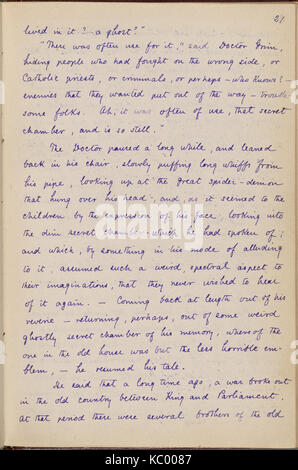 21
lived in it? — a ghost?"
"There was often use for it," said Doctor Grim,
hiding people who had fought on the wrong side, or
Catholic priests, or criminals, or perhaps — who knows? —
enemies that they wanted put out of the way — trouble-
some folks. Ah, it was often of use, that secret
chamber, and is so still."
The Doctor paused a long while, and leaned
back in his chair, slowly puffing long whiffs from
his pipe, looking up at the great spider-demon
that hung over his head, and, as it seemed to the
children by the expression of his face, looking into
the dim secret chamber which he had spoken of;
and which, by something in his mode of alluding
to it, assumed such a weird, spectral aspect to
their imaginations, that they never wished to hear
of it again. — Coming back at length out of his
reverie — returning, perhaps, out of some weird
ghostly secret chamber of his memory, whereof the
one in the old house was but the less horrible em-
blem, — he resumed his tale.
He said that a long time ago, a war broke out
in the old country between King and Parliament.
At that period there were several brothers of the old
alamy
Image ID: KC0087
www.alamy.com